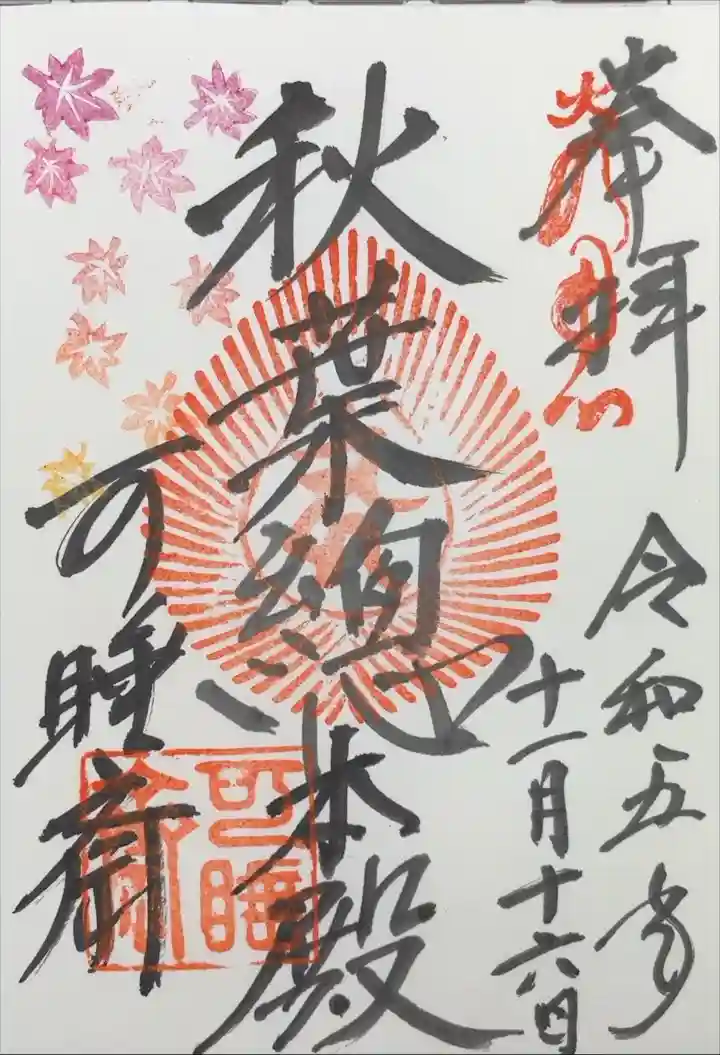 奉拝
令和五年
十一月十六日
秋葉總本殿
可睡斎
可睡齋